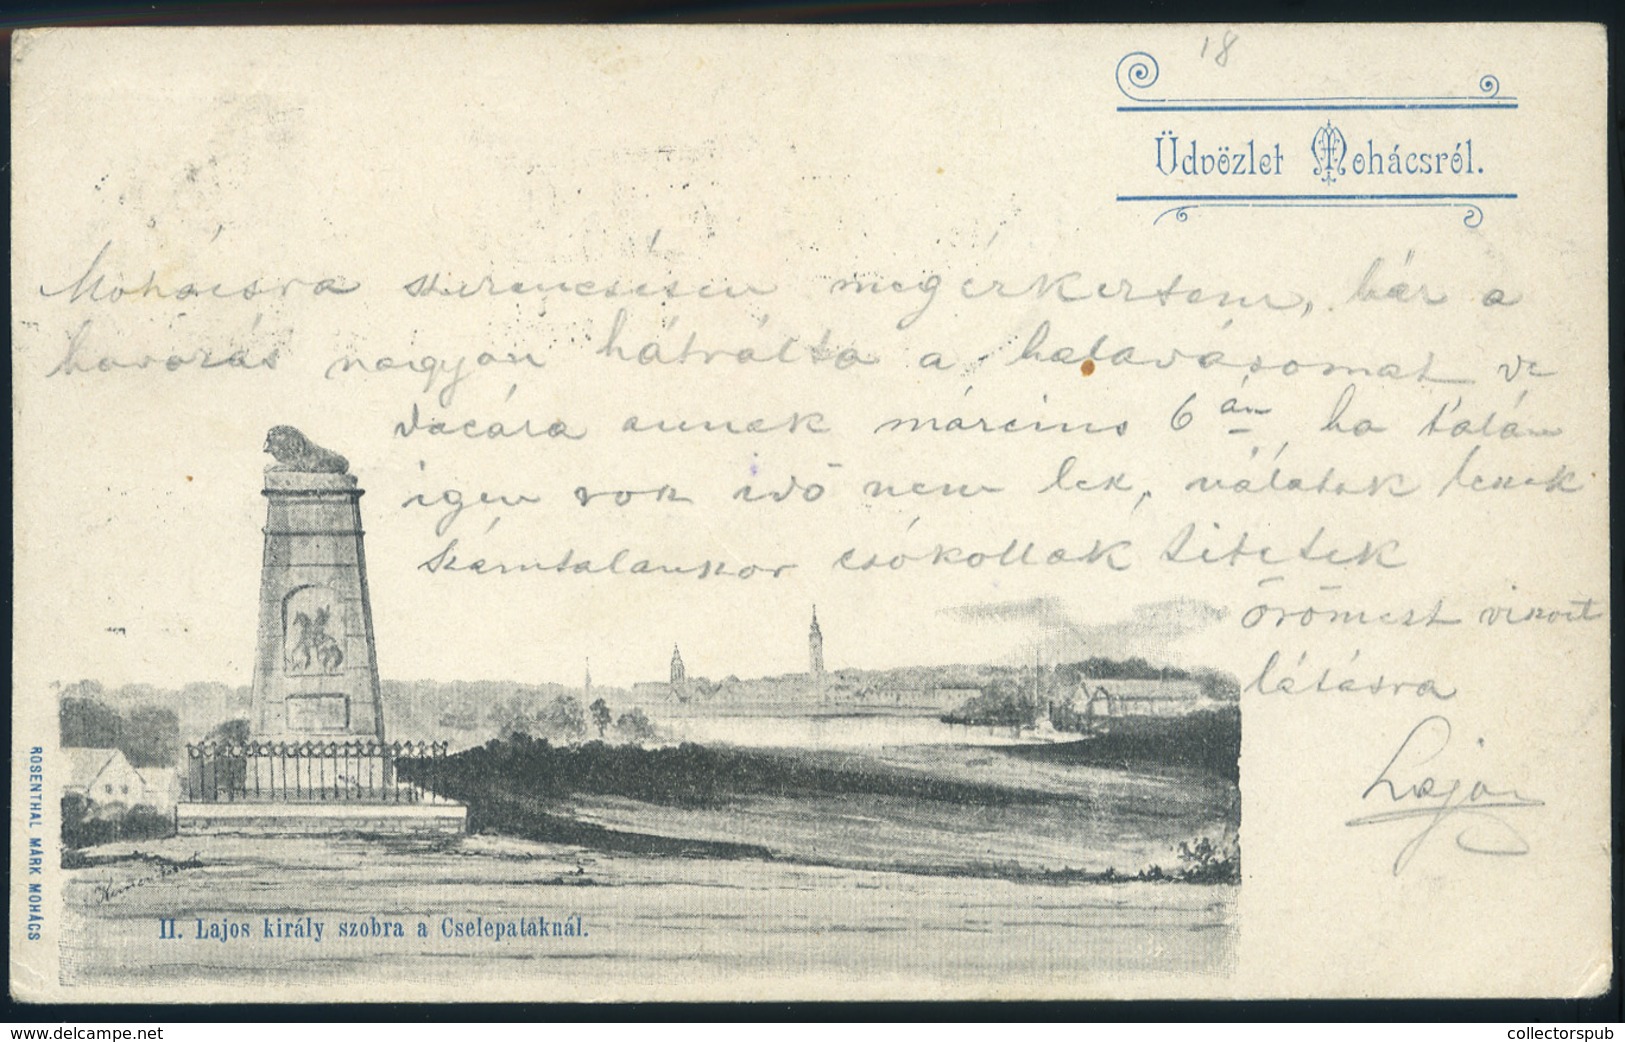 18
Üdvözlet Mohácsról.
Mohácsra szerencsésen megérkeztem, bár a
havazás nagyon hátrálta a haladásomat
vacsára annak március 6 án ha talán
igen sok idő nem lesz, nálatok leszek
számtalanszor csókollak titeteket
örömest viszont
látásra
Lajos
II. Lajos király szobra a Cselepataknál.
ROSENTHAL MÁRK MOHÁCS
www.delcampe.net
collectorspub